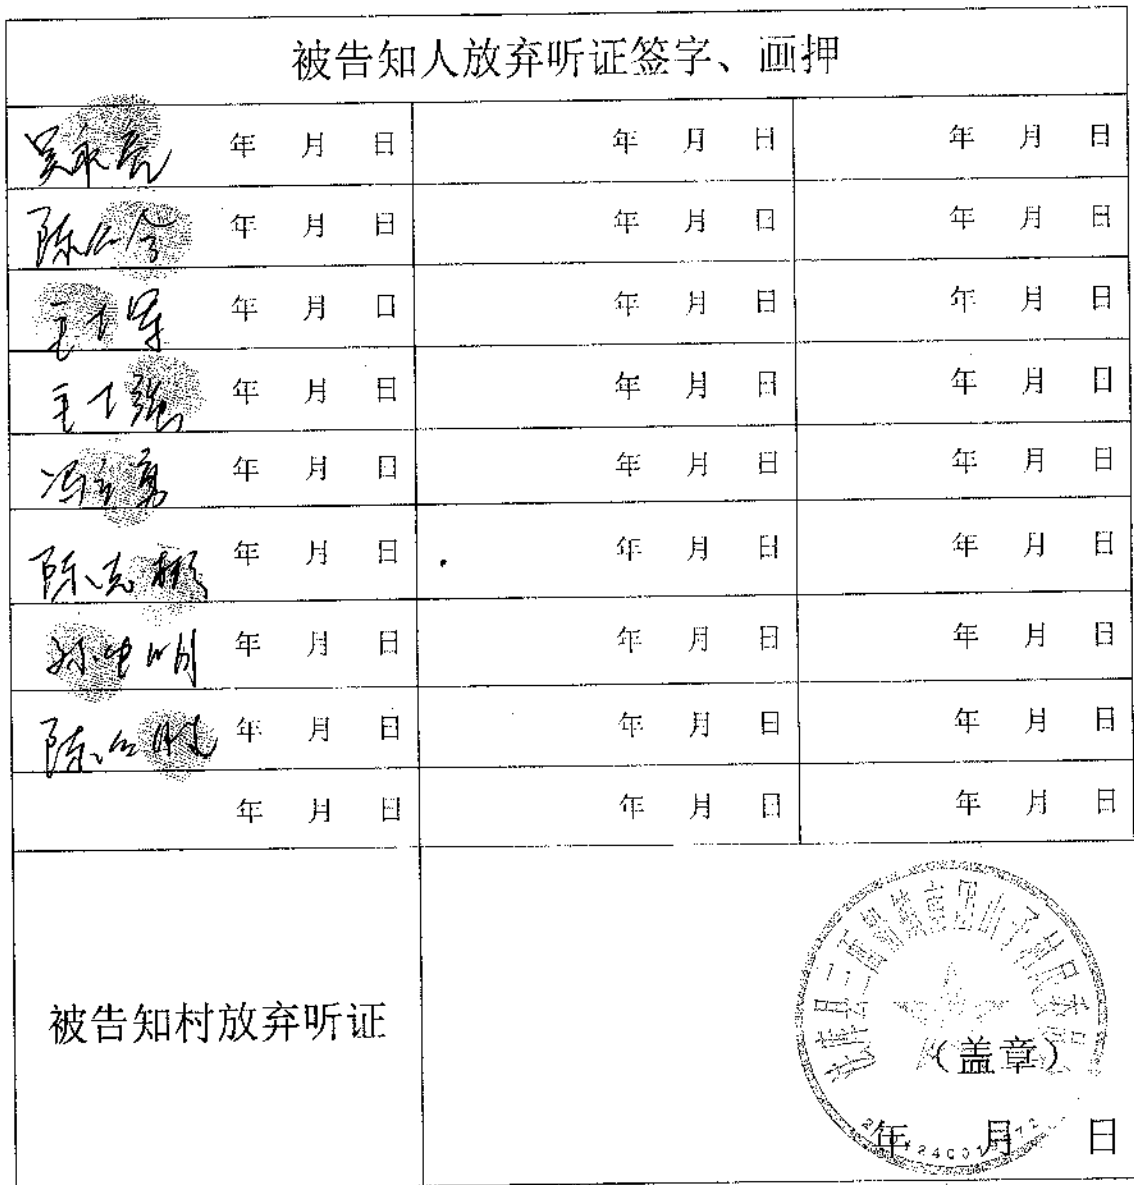 被告知人放弃听证签字、画押
吴永亮 年 月 日 年 月 日 年 月 日
陈仁会 年 月 日 年 月 日 年 月 日
王士军 年 月 日 年 月 日 年 月 日
王士强 年 月 日 年 月 日 年 月 日
冯立勇 年 月 日 年 月 日 年 月 日
陈志彬 年 月 日 年 月 日 年 月 日
孙忠明 年 月 日 年 月 日 年 月 日
陈仁胜 年 月 日 年 月 日 年 月 日
年 月 日 年 月 日 年 月 日
被告知村放弃听证
(盖章)
年 月 日